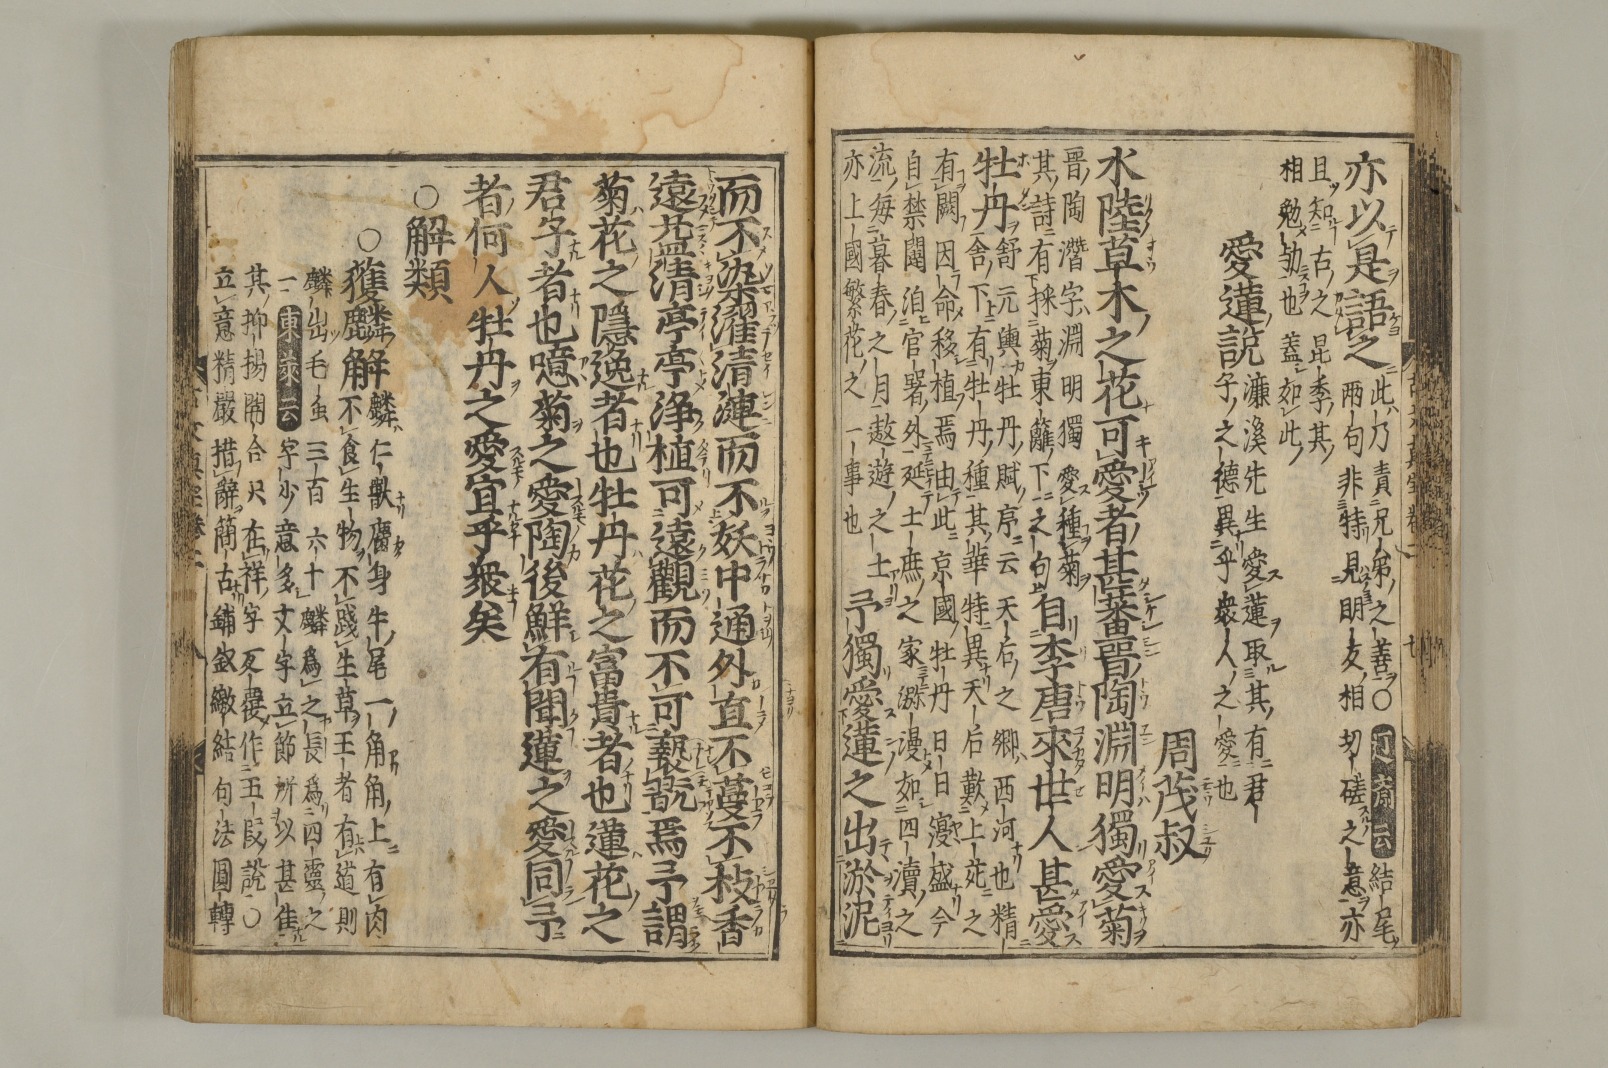 亦以是語之
此乃責兄弟之善○迂齋云結尾
兩句非特見朋友相切磋之意亦
且知古之昆季其
相勉勵也蓋如此
愛蓮說
濂溪先生愛蓮取其有君
子之德異乎衆人之愛也
周茂叔
水陸草木之花可愛者甚蕃晉陶淵明獨愛菊
晉陶潛字淵明獨愛種菊
其詩有採菊東籬下之句
自李唐來世人甚愛
牡丹
舒元輿牡丹賦序云天后之鄉西河也精
舍下有牡丹種其華特異天后歎上苑之
有闕因命移植焉由此京國牡丹日月寖盛今
自禁闥洎官署外延士庶之家瀰漫如四瀆之
流每暮春之月遨遊之士
亦上國繁花之一事也
予獨愛蓮之出淤泥
而不染濯清漣而不妖中通外直不蔓不枝香
遠益清亭亭淨植可遠觀而不可褻翫焉予謂
菊花之隱逸者也牡丹花之富貴者也蓮花之
君子者也噫菊之愛陶後鮮有聞蓮之愛同予
者何人牡丹之愛宜乎衆矣
○解類
○獲麟解
麟仁獸麕身牛尾一角角上有肉
不食生物不踐生草王者有道則
麟出毛虫三百六十麟爲之長爲四靈之
一東萊云字少意多文字立節所以甚佳
其抑揚開合只在祥字反覆作五段說○
立意精嚴措辭簡古鋪敘繳結句法圓轉